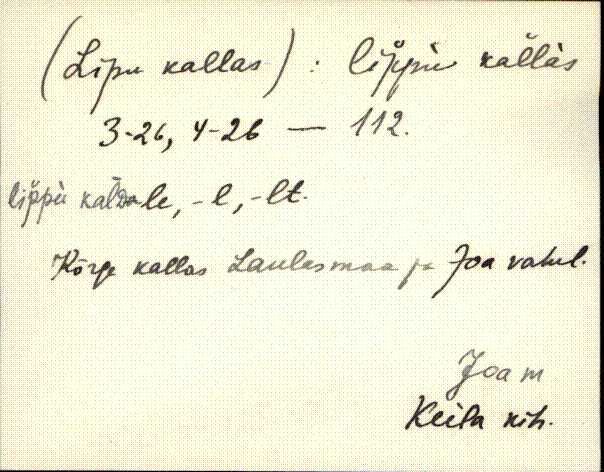 (Lipu kallas) : lip̆pù kal̆làs
3-26, 4-26 — 112.
lip̆pù kal̆dale, -l, -lt.
Kõrge kallas Laulasmaa ja Joa vahel.
Joa m
Keila kih.